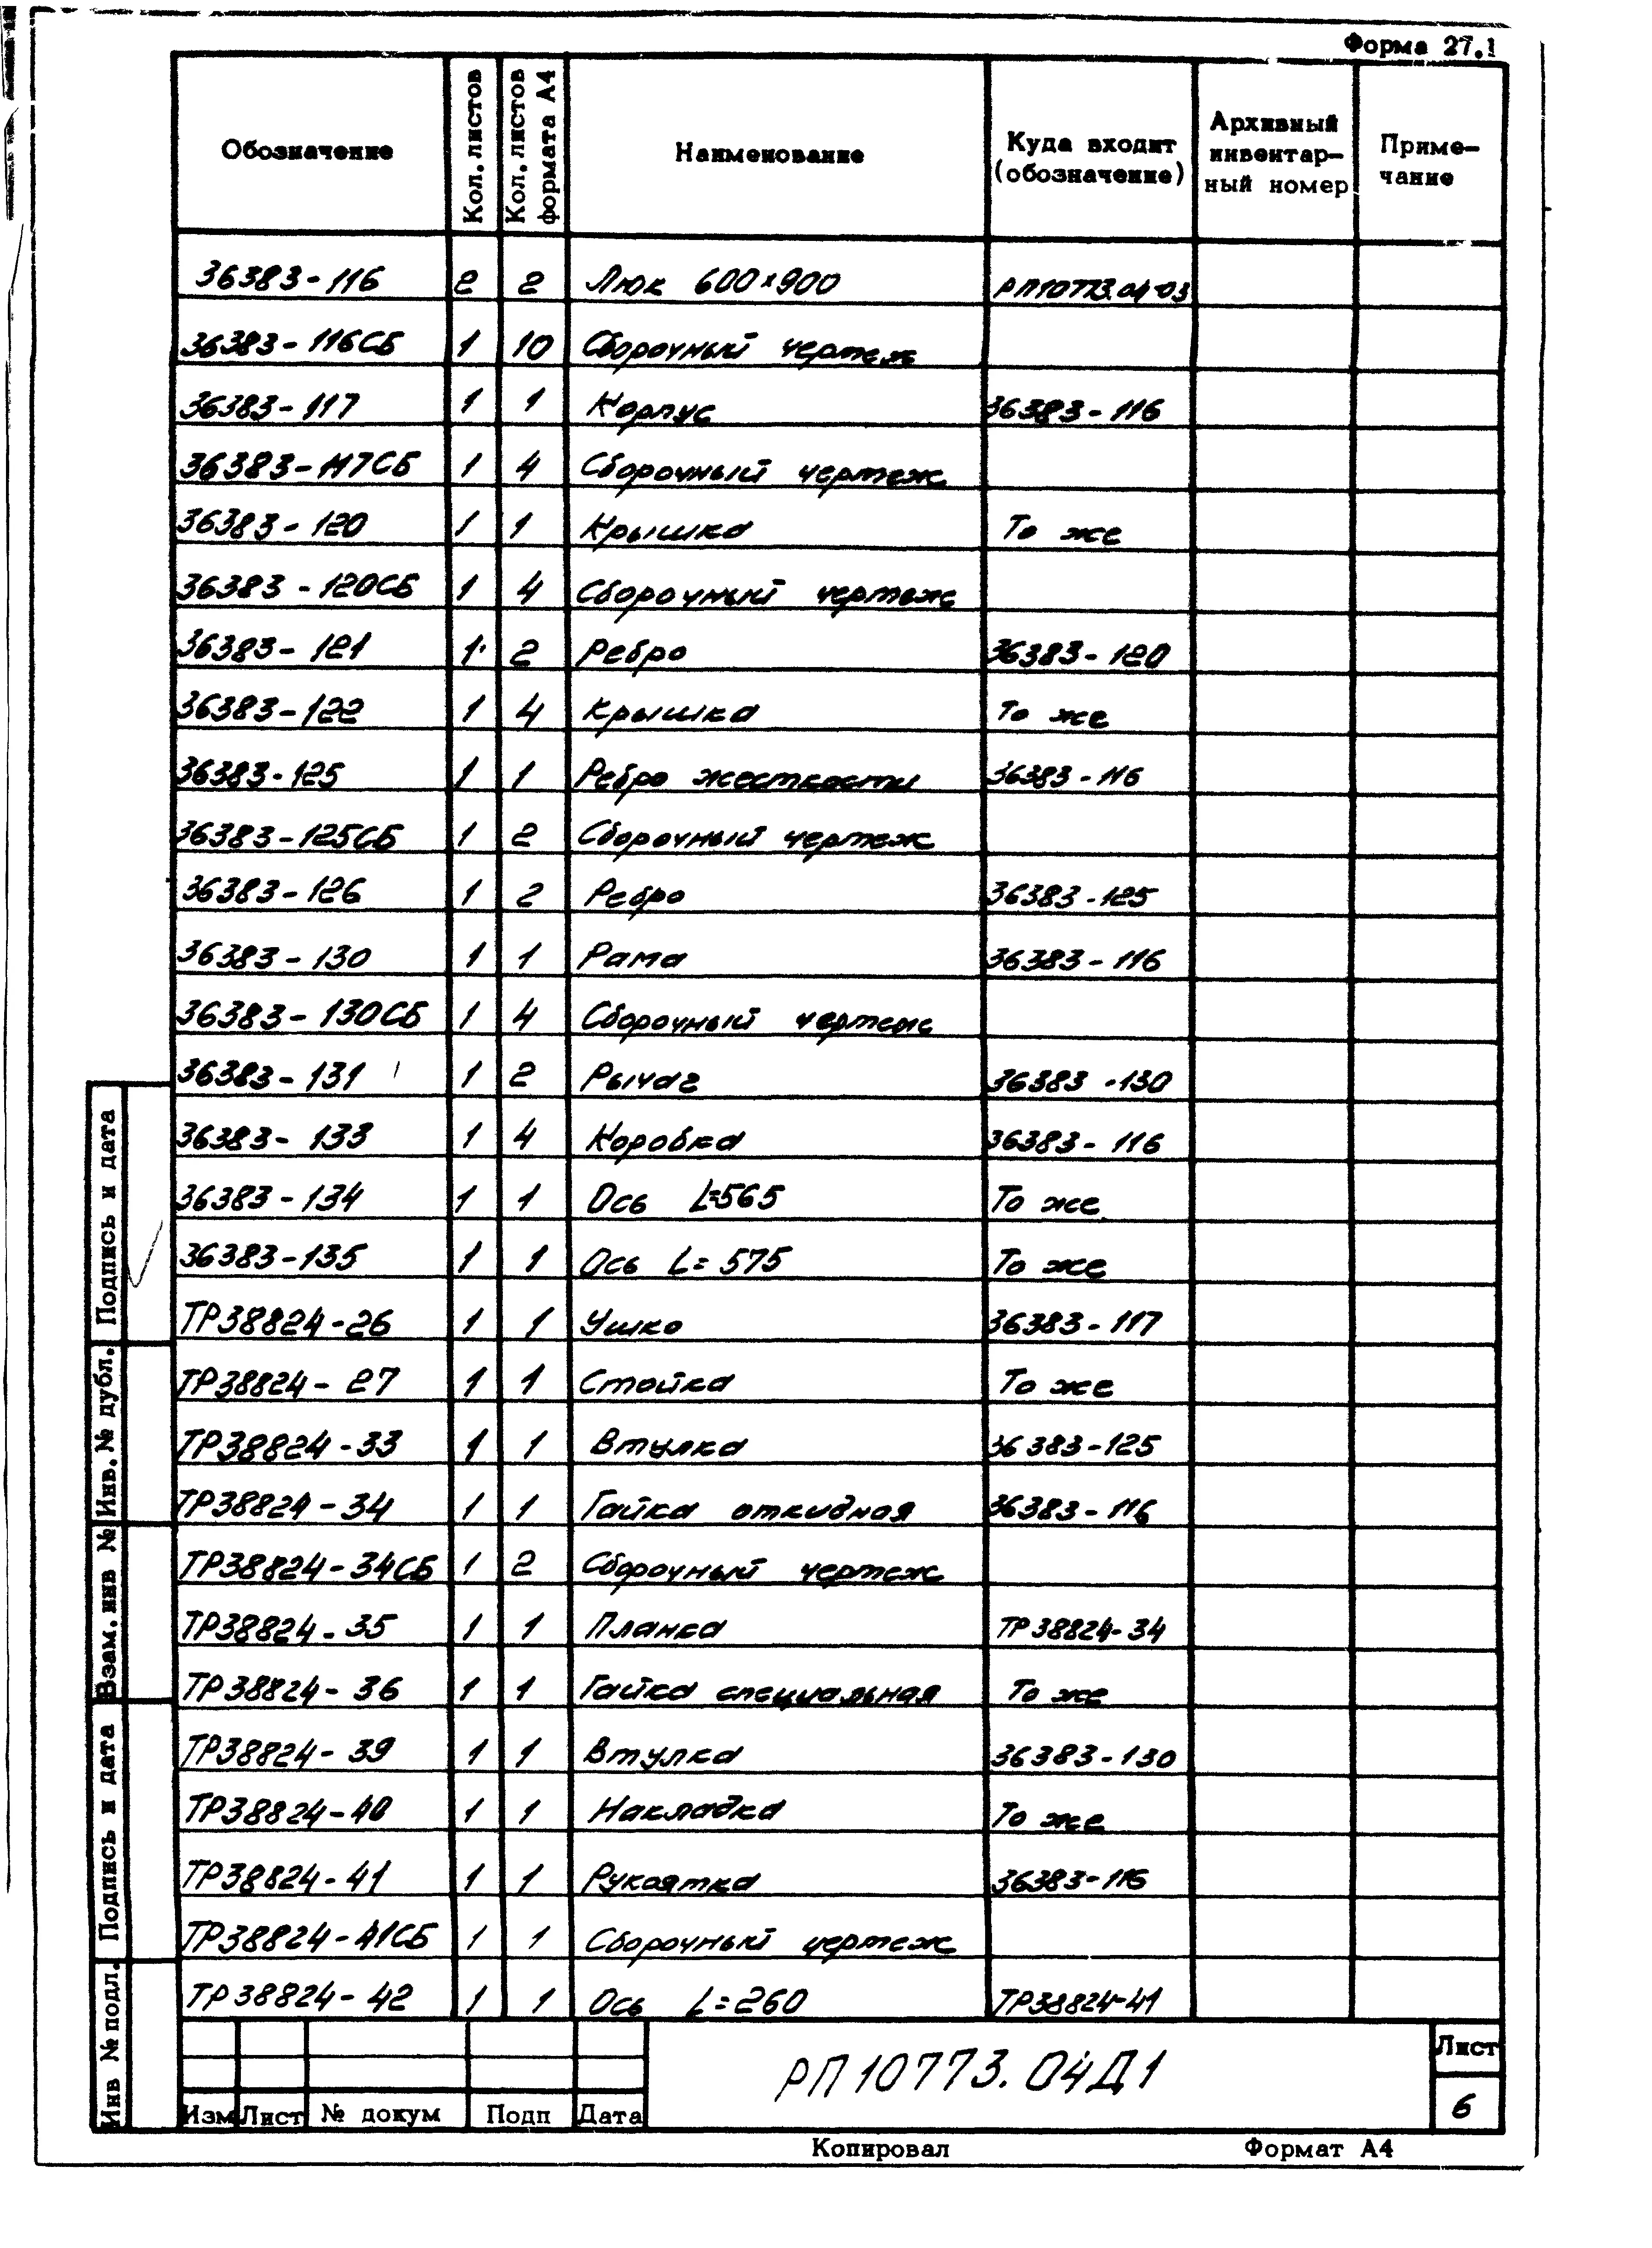 Форма 27.1
Обозначение Кол. листов Кол. листов формата А4 Наименование Куда входит (обозначение) Архивный инвентар-ный номер Приме-чание
36383-116 2 2 Люк 600×900 РП10773.04-03
36383-116СБ 1 10 Сборочный чертеж
36383-117 1 1 Корпус 36383-116
36383-117СБ 1 4 Сборочный чертеж
36383-120 1 1 Крышка То же
36383-120СБ 1 4 Сборочный чертеж
36383-121 1 2 Ребро 36383-120
36383-122 1 4 Крышка То же
36383-125 1 1 Ребро жесткости 36383-116
36383-125СБ 1 2 Сборочный чертеж
36383-126 1 2 Ребро 36383-125
36383-130 1 1 Рама 36383-116
36383-130СБ 1 4 Сборочный чертеж
36383-131 1 2 Рычаг 36383-130
36383-133 1 4 Коробка 36383-116
36383-134 1 1 Ось L=565 То же
36383-135 1 1 Ось L=575 То же
ТР38824-26 1 1 Ушко 36383-117
ТР38824-27 1 1 Стойка То же
ТР38824-33 1 1 Втулка 36383-125
ТР38824-34 1 1 Гайка откидная 36383-116
ТР38824-34СБ 1 2 Сборочный чертеж
ТР38824-35 1 1 Планка ТР38824-34
ТР38824-36 1 1 Гайка специальная То же
ТР38824-39 1 1 Втулка 36383-130
ТР38824-40 1 1 Накладка То же
ТР38824-41 1 1 Рукоятка 36383-116
ТР38824-41СБ 1 1 Сборочный чертеж
ТР38824-42 1 1 Ось L=260 ТР38824-41
Подпись и дата
Инв. № дубл.
Взам. инв №
Подпись и дата
Инв № подл.
РП10773.04Д1
Лист
6
Изм Лист № докум Подп Дата
Копировал Формат А4